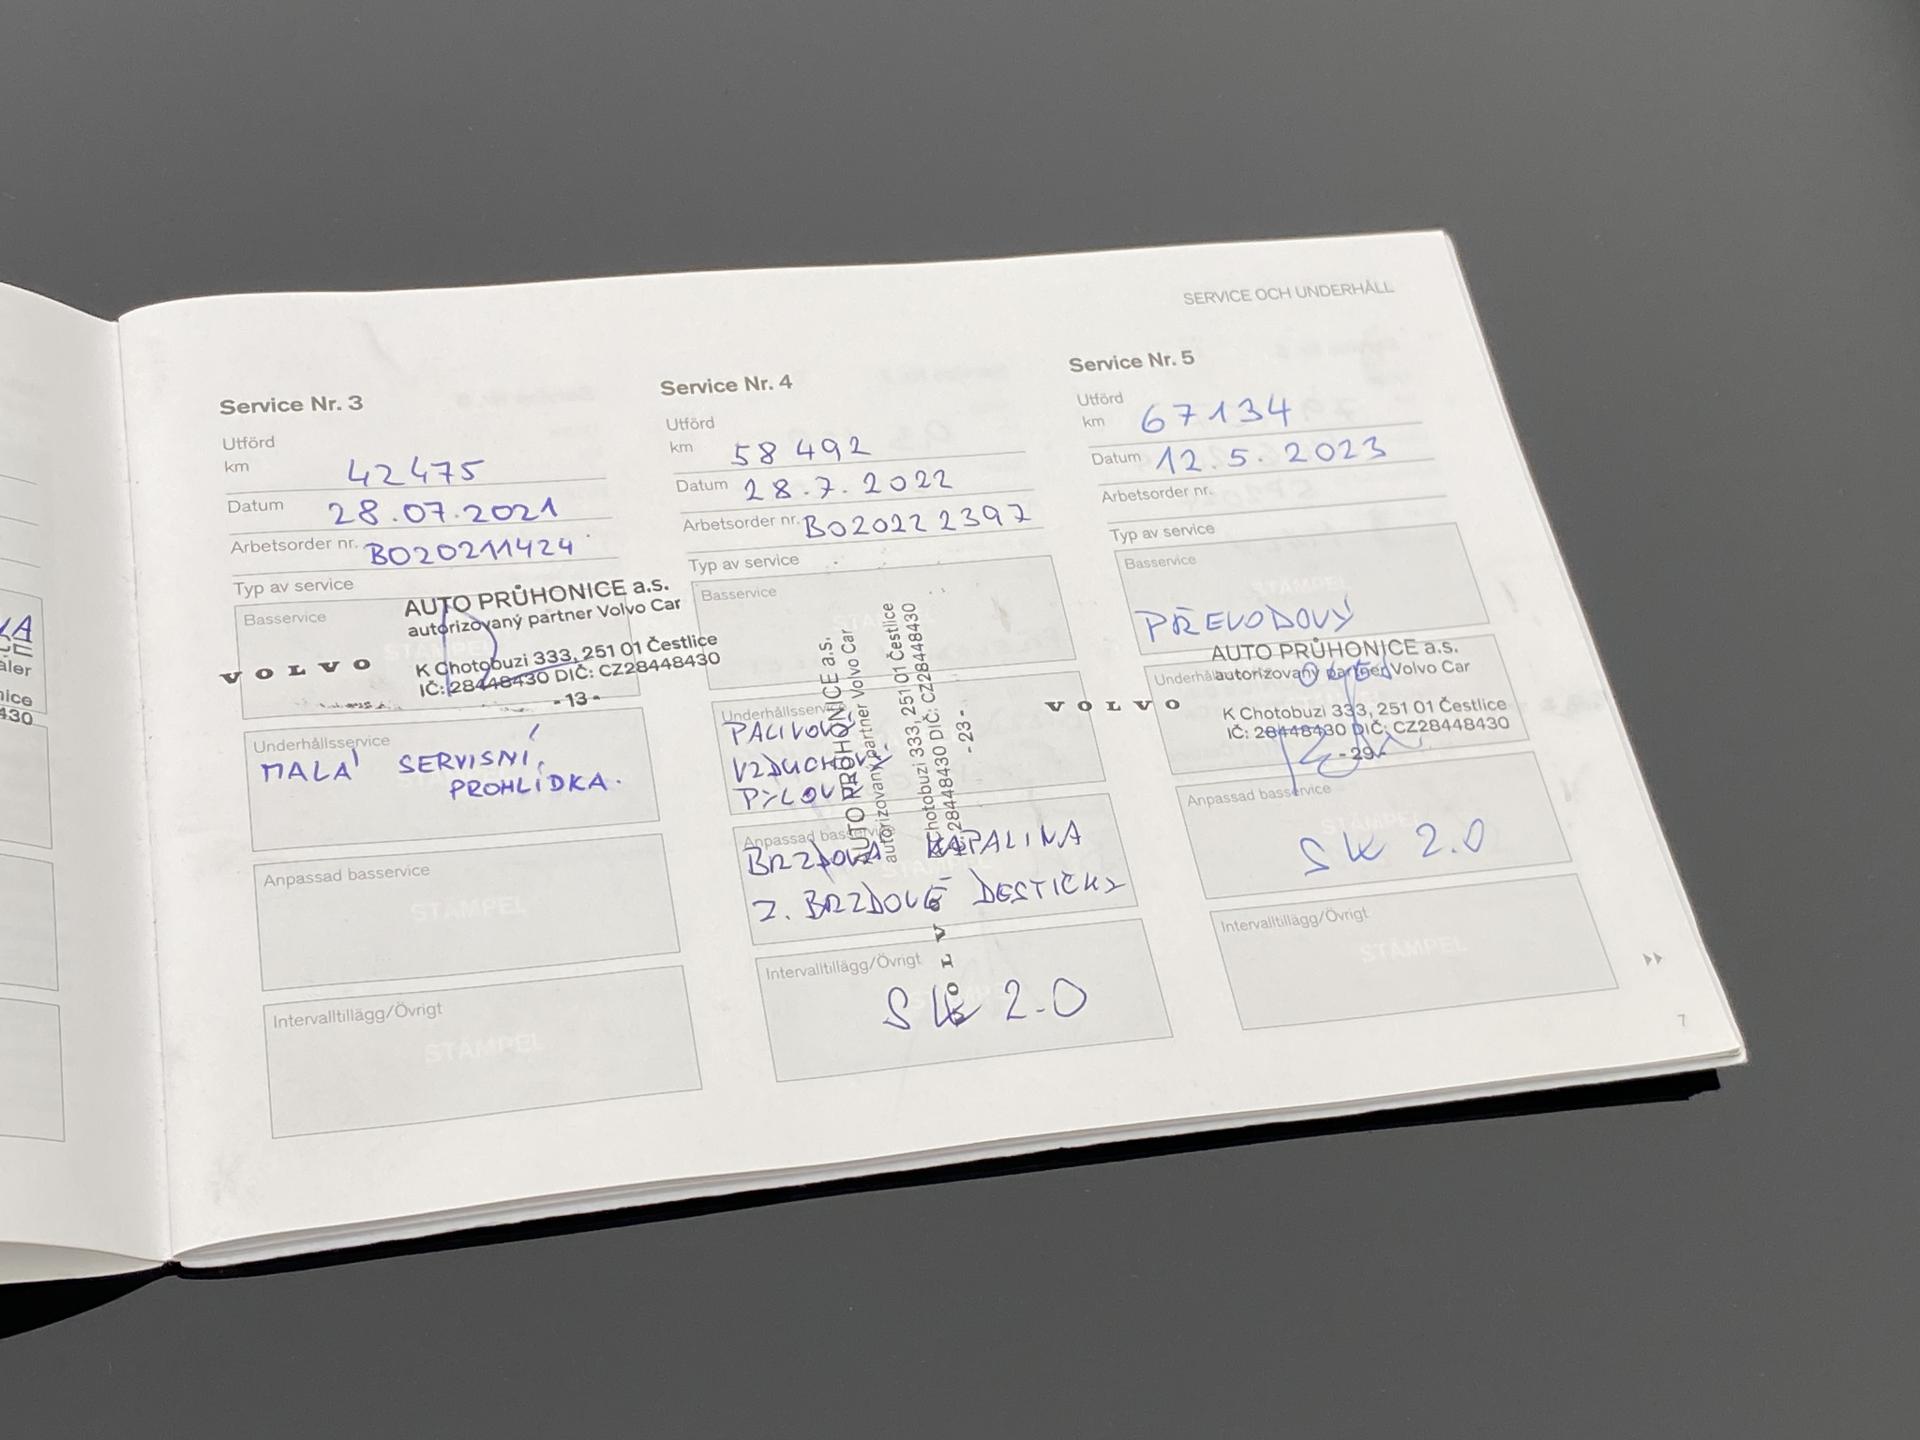 SERVICE OCH UNDERHÅLL
Service Nr. 3
Utförd
km 42475
Datum 28.07.2021
Arbetsorder nr. BO20211424
Typ av service
Basservice
AUTO PRŮHONICE a.s.
autorizovaný partner Volvo Car
VOLVO
K Chotobuzi 333, 251 01 Čestlice
IČ: 28448430 DIČ: CZ28448430
- 13 -
Underhållsservice
MALÁ SERVISNÍ
PROHLÍDKA.
Anpassad basservice
STÄMPEL
Intervalltillägg/Övrigt
STÄMPEL
Service Nr. 4
Utförd
km 58 492
Datum 28.7.2022
Arbetsorder nr. BO20222397
Typ av service
Basservice
AUTO PRŮHONICE a.s.
autorizovaný partner Volvo Car
K Chotobuzi 333, 251 01 Čestlice
IČ: 28448430 DIČ: CZ28448430
- 23 -
VOLVO
Underhållsservice
Anpassad basservice
BRZDOVÁ KAPALINA
Z. BRZDOVÉ DESTIČKY
Intervalltillägg/Övrigt
SK 2.0
Service Nr. 5
Utförd
km 67134
Datum 12.5.2023
Arbetsorder nr.
Typ av service
Basservice
STÄMPEL
PŘEVODOVÝ
AUTO PRŮHONICE a.s.
autorizovaný partner Volvo Car
VOLVO
K Chotobuzi 333, 251 01 Čestlice
IČ: 28448430 DIČ: CZ28448430
- 29 -
Anpassad basservice
SK 2.0
Intervalltillägg/Övrigt
STÄMPEL
7